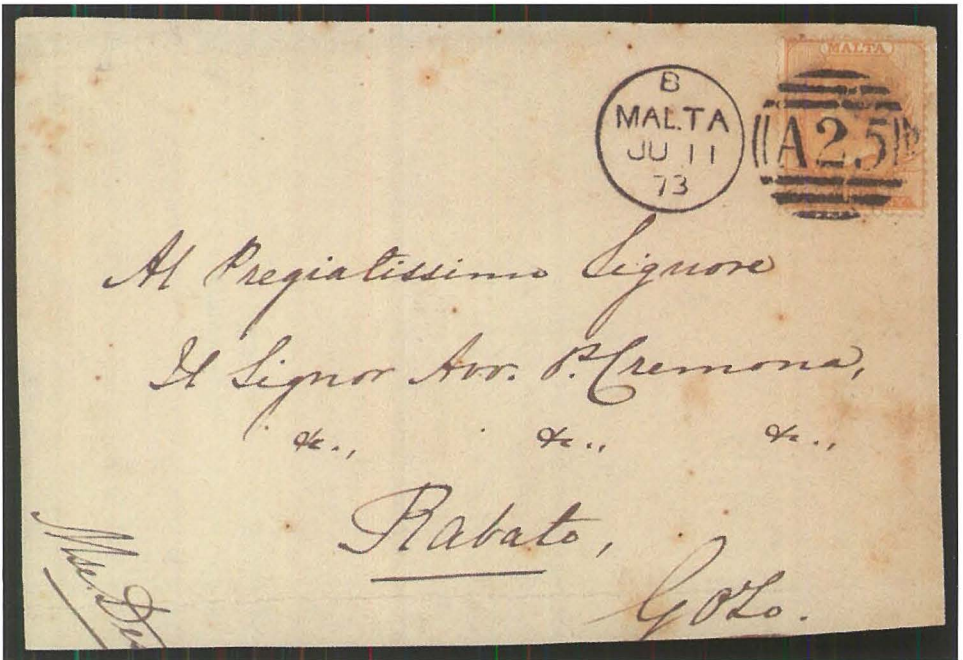 MALTA
B
MALTA
JU 11
73
A25
Al Pregiatissimo Signore
Il Signor Avv. P. Cremona,
&c., &c., &c.,
Rabato,
Gozo.